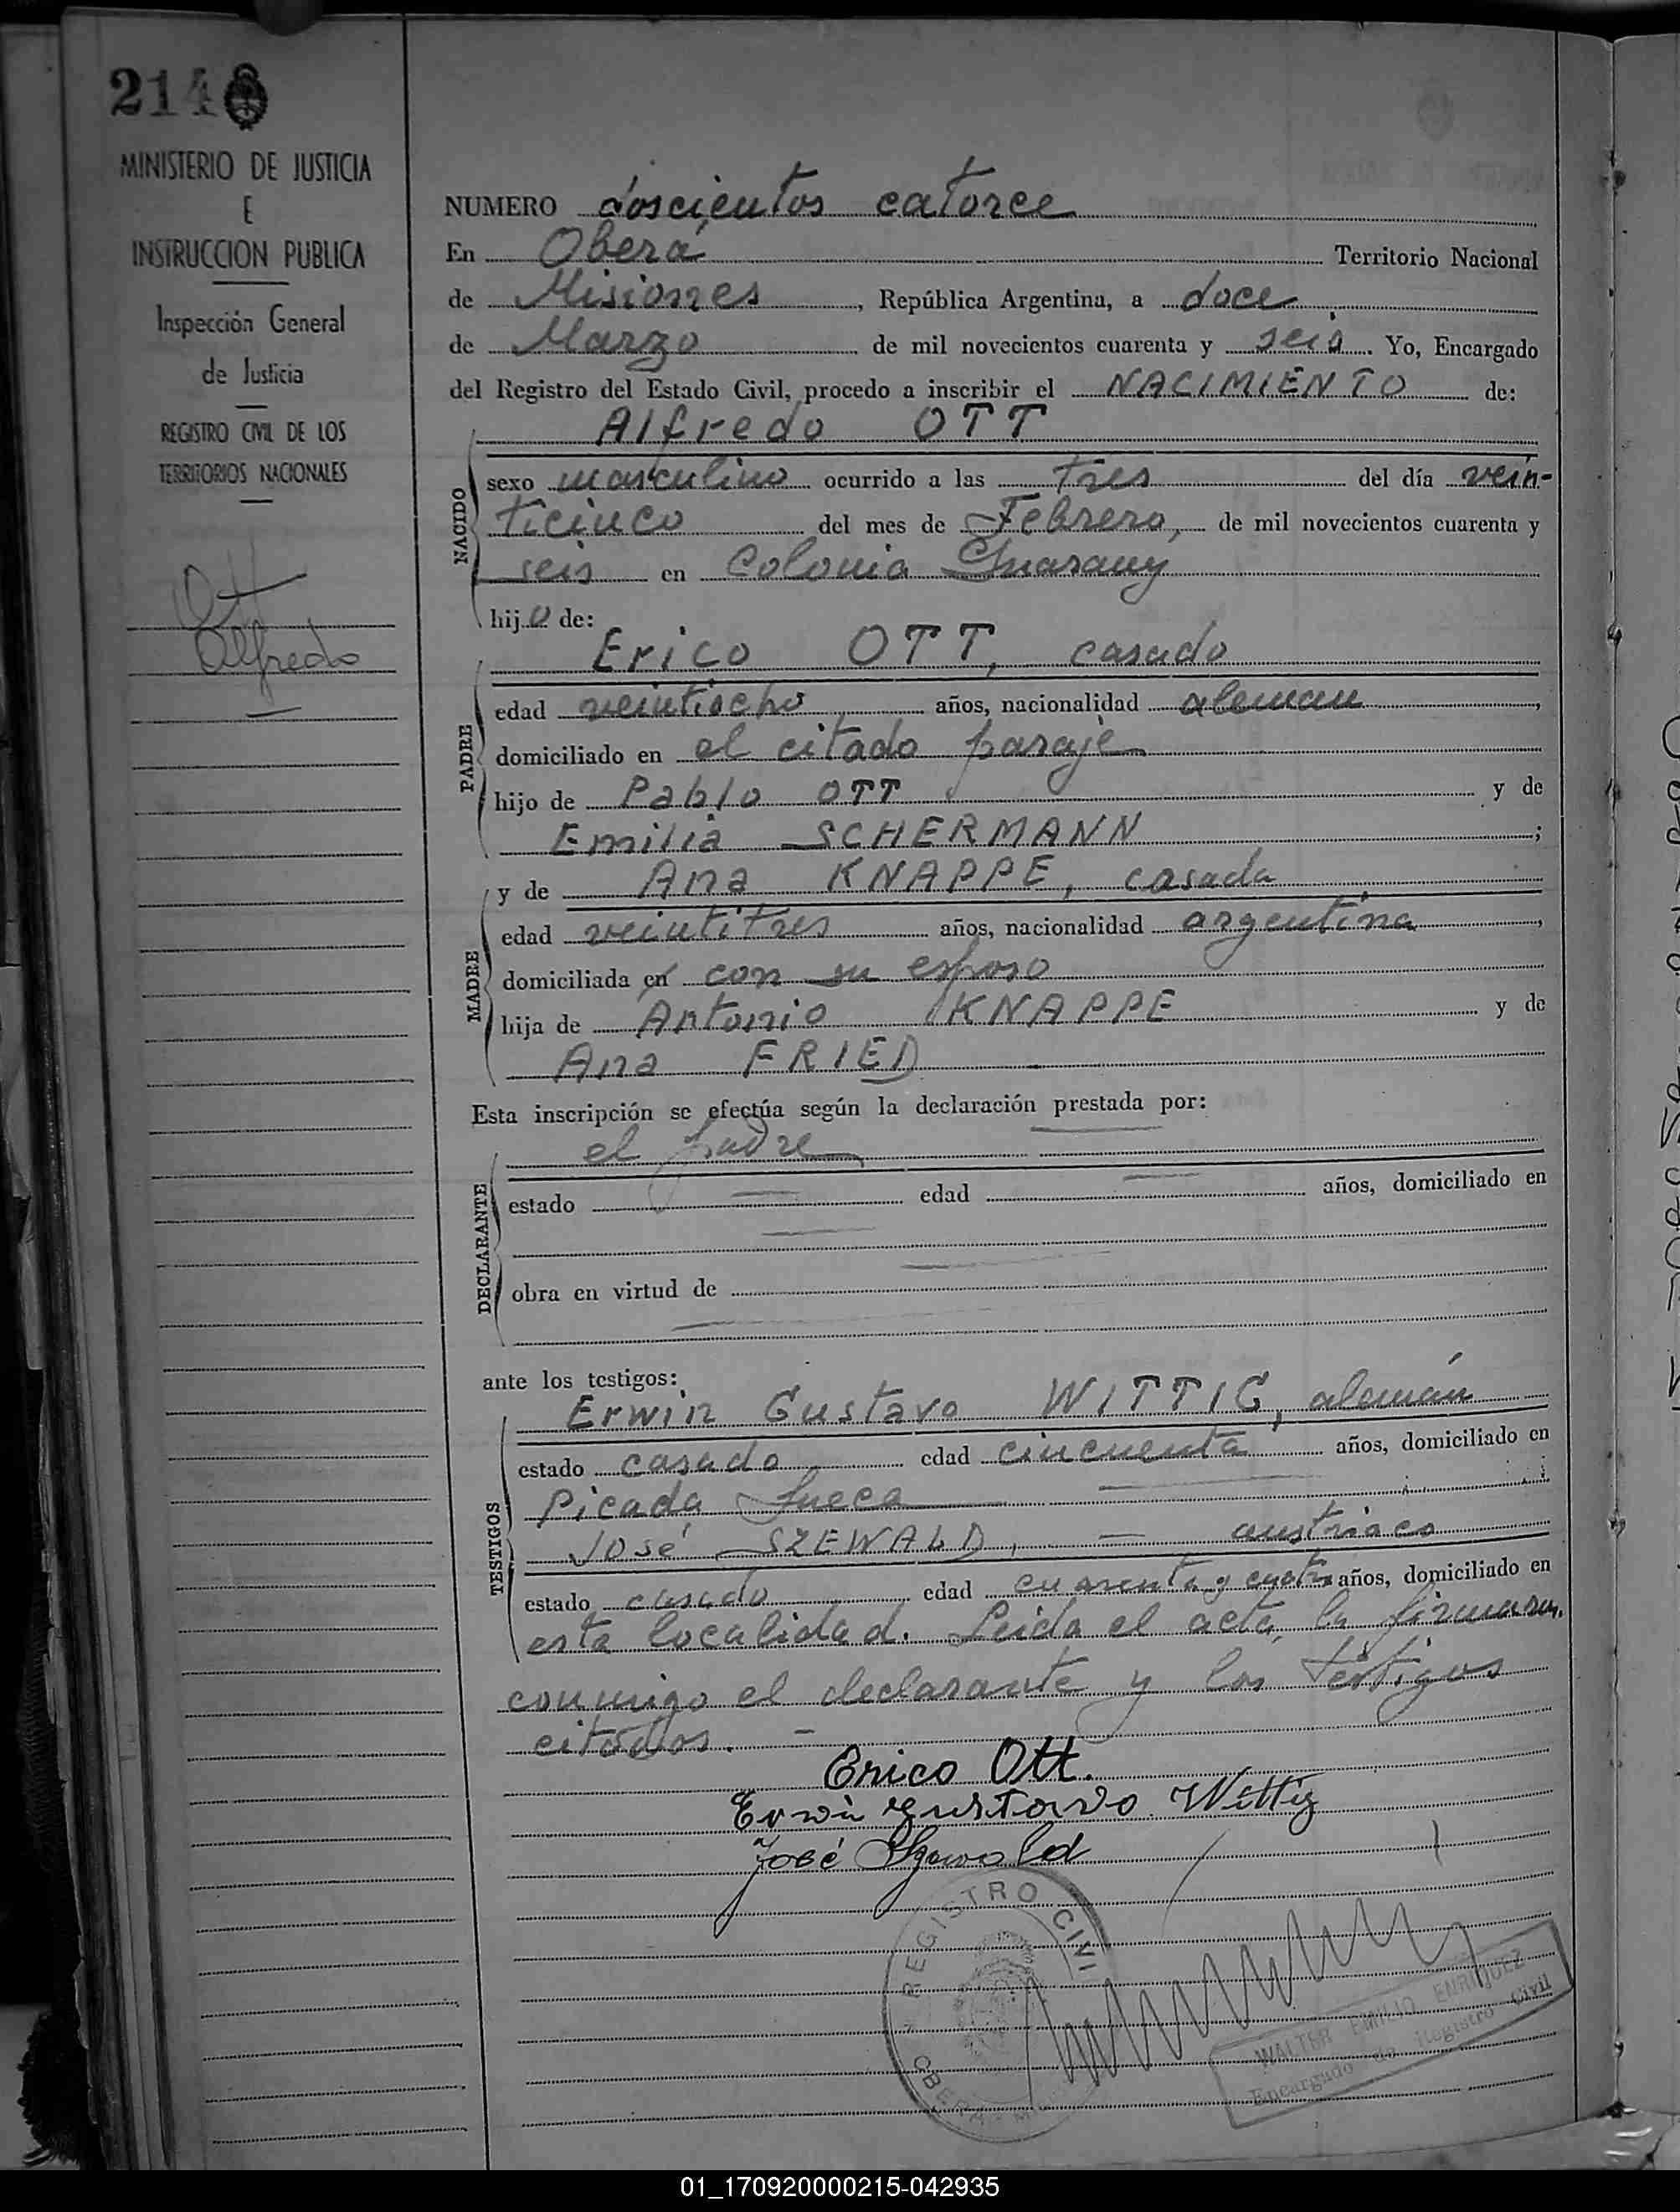 214
MINISTERIO DE JUSTICIA
E
INSTRUCCION PUBLICA
Inspección General
de Justicia
REGISTRO CIVIL DE LOS
TERRITORIOS NACIONALES
Ott
Alfredo
NUMERO doscientos catorce
En Oberá Territorio Nacional
de Misiones, República Argentina, a doce
de Marzo de mil novecientos cuarenta y seis. Yo, Encargado
del Registro del Estado Civil, procedo a inscribir el NACIMIENTO de:
Alfredo OTT
NACIDO
sexo masculino ocurrido a las tres del día vein-
ticinco del mes de Febrero, de mil novecientos cuarenta y
seis en Colonia Guarany
hijo de:
Erico OTT, casado
PADRE
edad veintiocho años, nacionalidad aleman,
domiciliado en el citado paraje
hijo de Pablo OTT y de
Emilia SCHERMANN;
y de Ana KNAPPE, casada
MADRE
edad veintitres años, nacionalidad argentina,
domiciliada en con su esposo
hija de Antonio KNAPPE y de
Ana FRIED
Esta inscripción se efectúa según la declaración prestada por:
el padre
DECLARANTE
estado edad años, domiciliado en
obra en virtud de
ante los testigos:
Erwin Gustavo WITTIG, alemán
TESTIGOS
estado casado edad cincuenta años, domiciliado en
Picada Sueca
José SZEWALD, - austriaco
estado casado edad cuarenta y cuatro años, domiciliado en
esta localidad. Leida el acta, la firmaron
conmigo el declarante y los testigos
citados. -
Erico Ott.
Erwin Gustavo Wittig
José Szewald
REGISTRO CIVIL
OBERA - 
WALTER EMILIO ENRIQUEZ
Encargado de Registro Civil
01_170920000215-042935